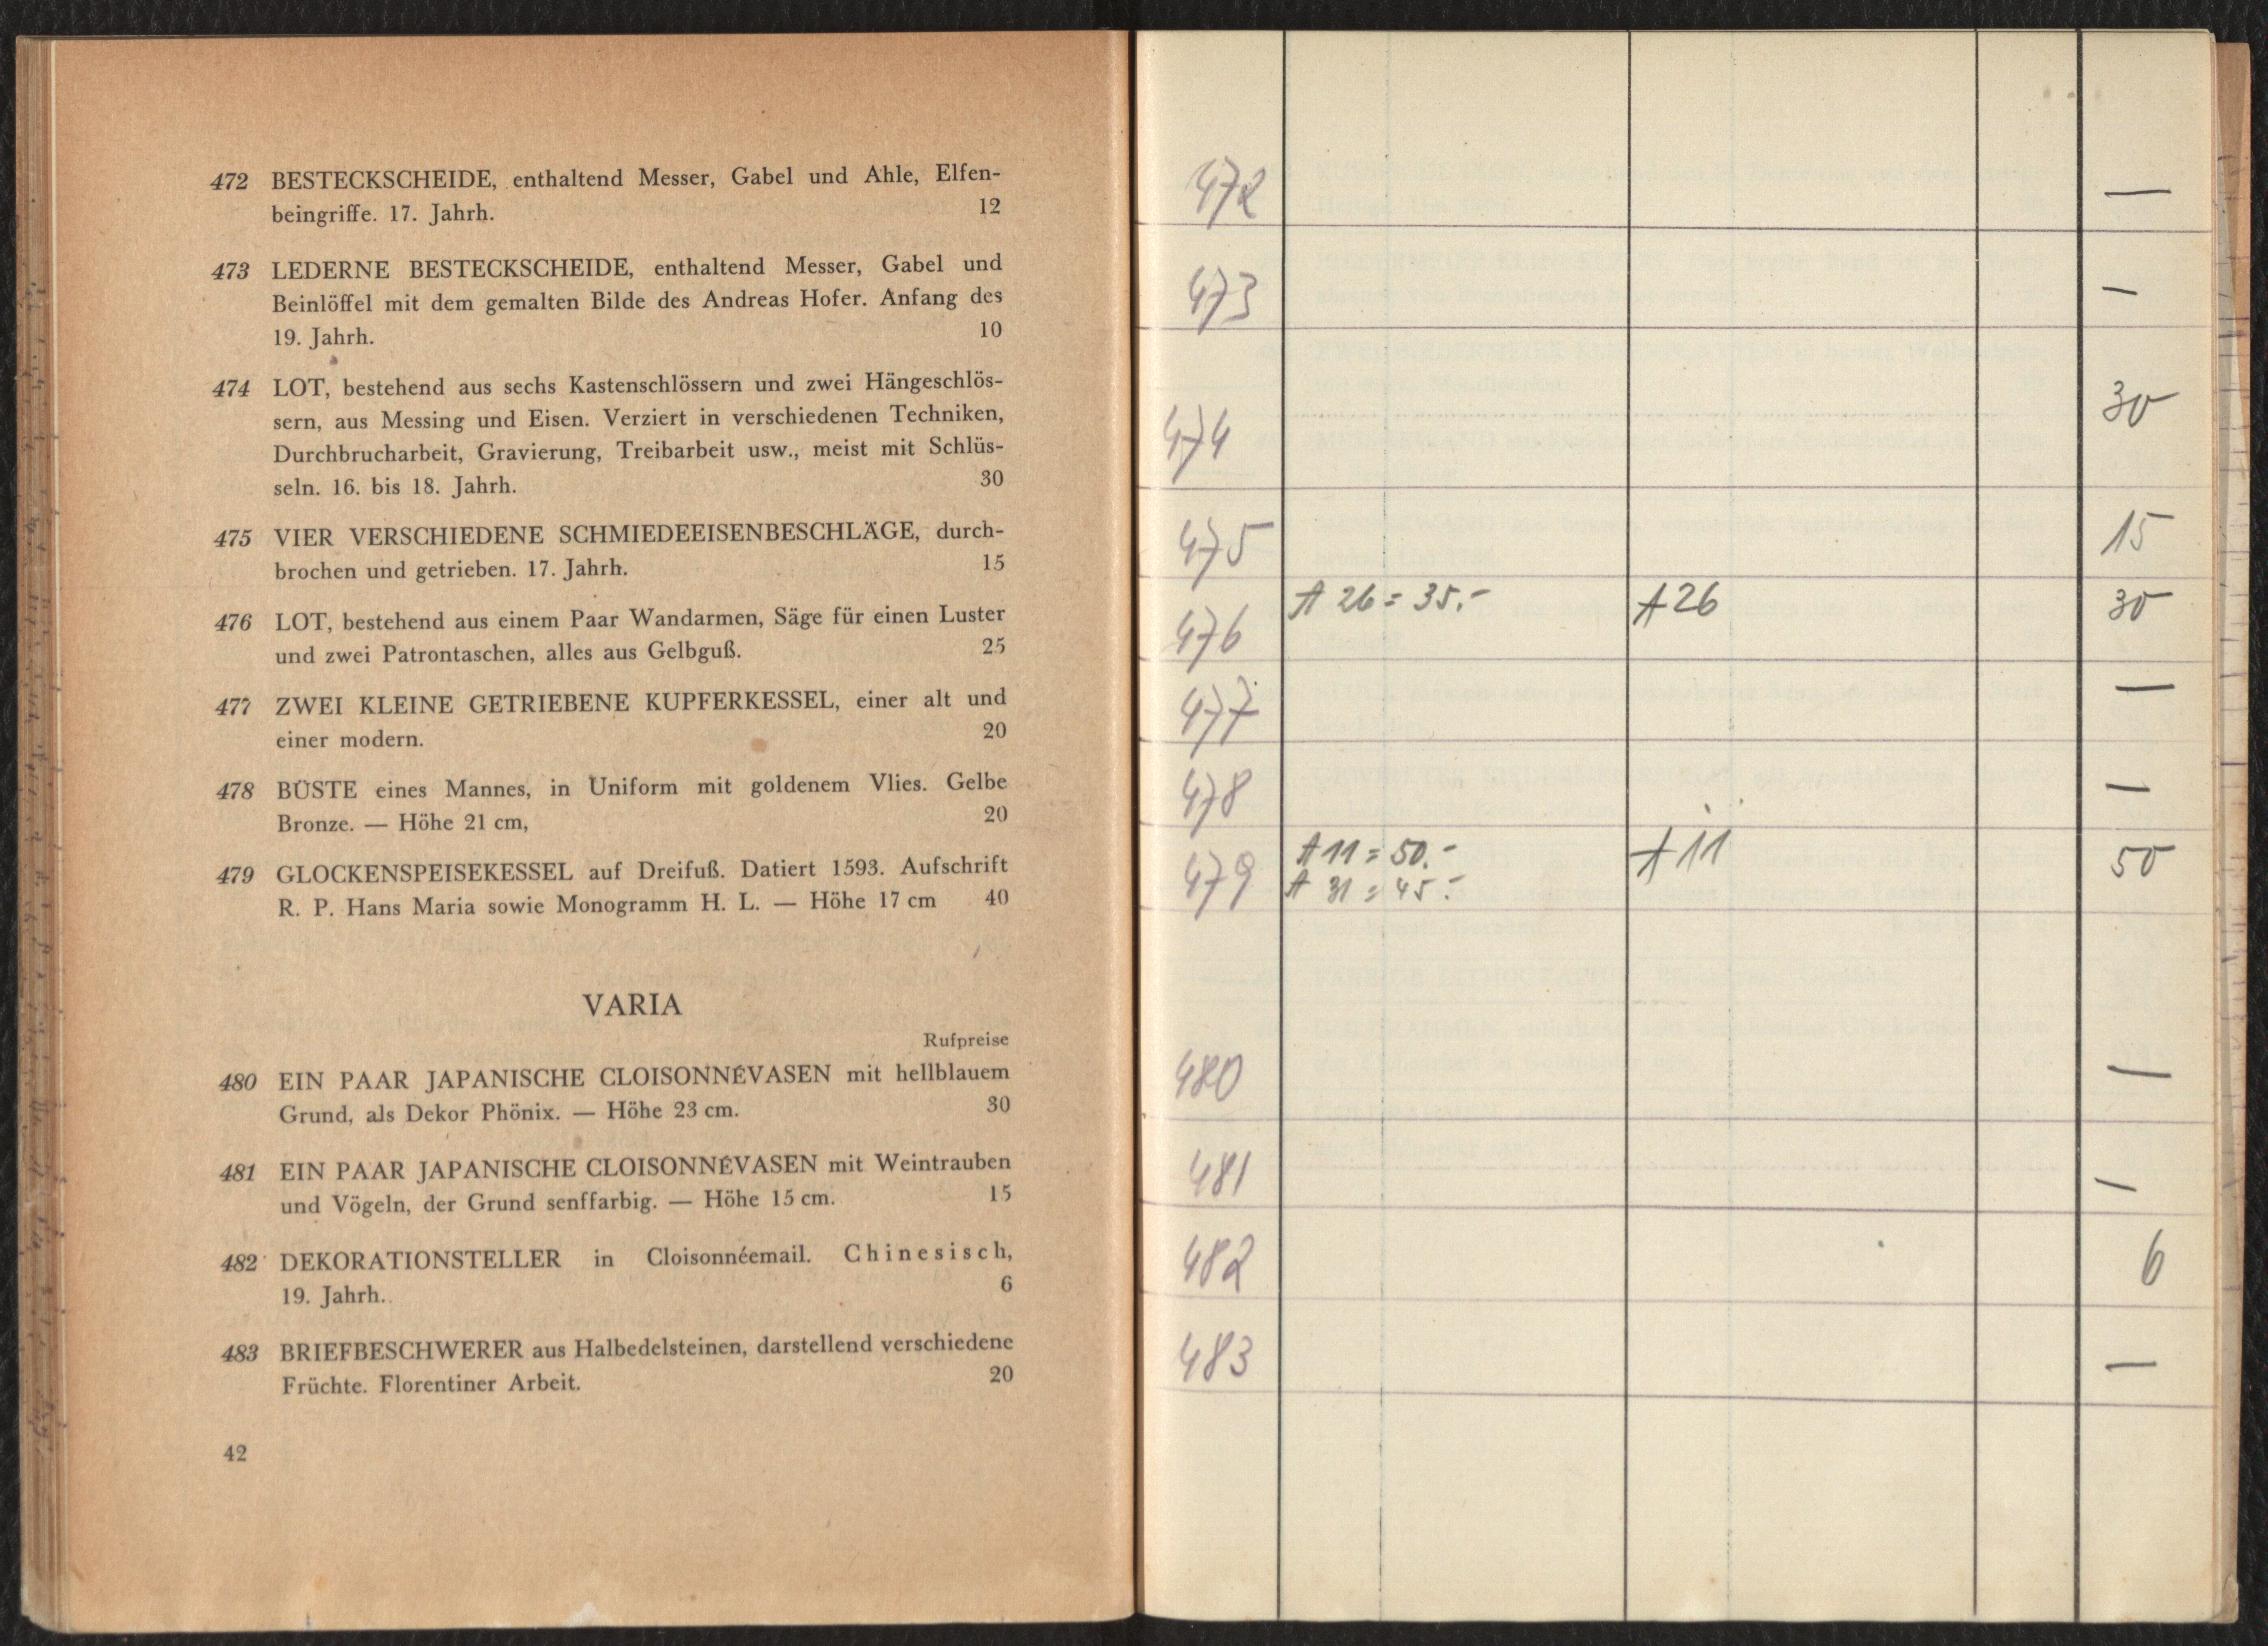 472 BESTECKSCHEIDE, enthaltend Messer, Gabel und Ahle, Elfen-
beingriffe. 17. Jahrh. 12
473 LEDERNE BESTECKSCHEIDE, enthaltend Messer, Gabel und
Beinlöffel mit dem gemalten Bilde des Andreas Hofer. Anfang des
19. Jahrh. 10
474 LOT, bestehend aus sechs Kastenschlössern und zwei Hängeschlös-
sern, aus Messing und Eisen. Verziert in verschiedenen Techniken,
Durchbrucharbeit, Gravierung, Treibarbeit usw., meist mit Schlüs-
seln. 16. bis 18. Jahrh. 30
475 VIER VERSCHIEDENE SCHMIEDEEISENBESCHLÄGE, durch-
brochen und getrieben. 17. Jahrh. 15
476 LOT, bestehend aus einem Paar Wandarmen, Säge für einen Luster
und zwei Patrontaschen, alles aus Gelbguß. 25
477 ZWEI KLEINE GETRIEBENE KUPFERKESSEL, einer alt und
einer modern. 20
478 BÜSTE eines Mannes, in Uniform mit goldenem Vlies. Gelbe
Bronze. — Höhe 21 cm, 20
479 GLOCKENSPEISEKESSEL auf Dreifuß. Datiert 1593. Aufschrift
R. P. Hans Maria sowie Monogramm H. L. — Höhe 17 cm 40
VARIA
Rufpreise
480 EIN PAAR JAPANISCHE CLOISONNÉVASEN mit hellblauem
Grund, als Dekor Phönix. — Höhe 23 cm. 30
481 EIN PAAR JAPANISCHE CLOISONNÉVASEN mit Weintrauben
und Vögeln, der Grund senffarbig. — Höhe 15 cm. 15
482 DEKORATIONSTELLER in Cloisonnéemail. Chinesisch,
19. Jahrh. 6
483 BRIEFBESCHWERER aus Halbedelsteinen, darstellend verschiedene
Früchte. Florentiner Arbeit. 20
42
472 —
473 —
474 30
475 15
476 A 26 = 35.- A 26 30
477 —
478 —
479 A 11 = 50.- A 11 50
A 31 = 45.-
480 —
481 —
482 6
483 —